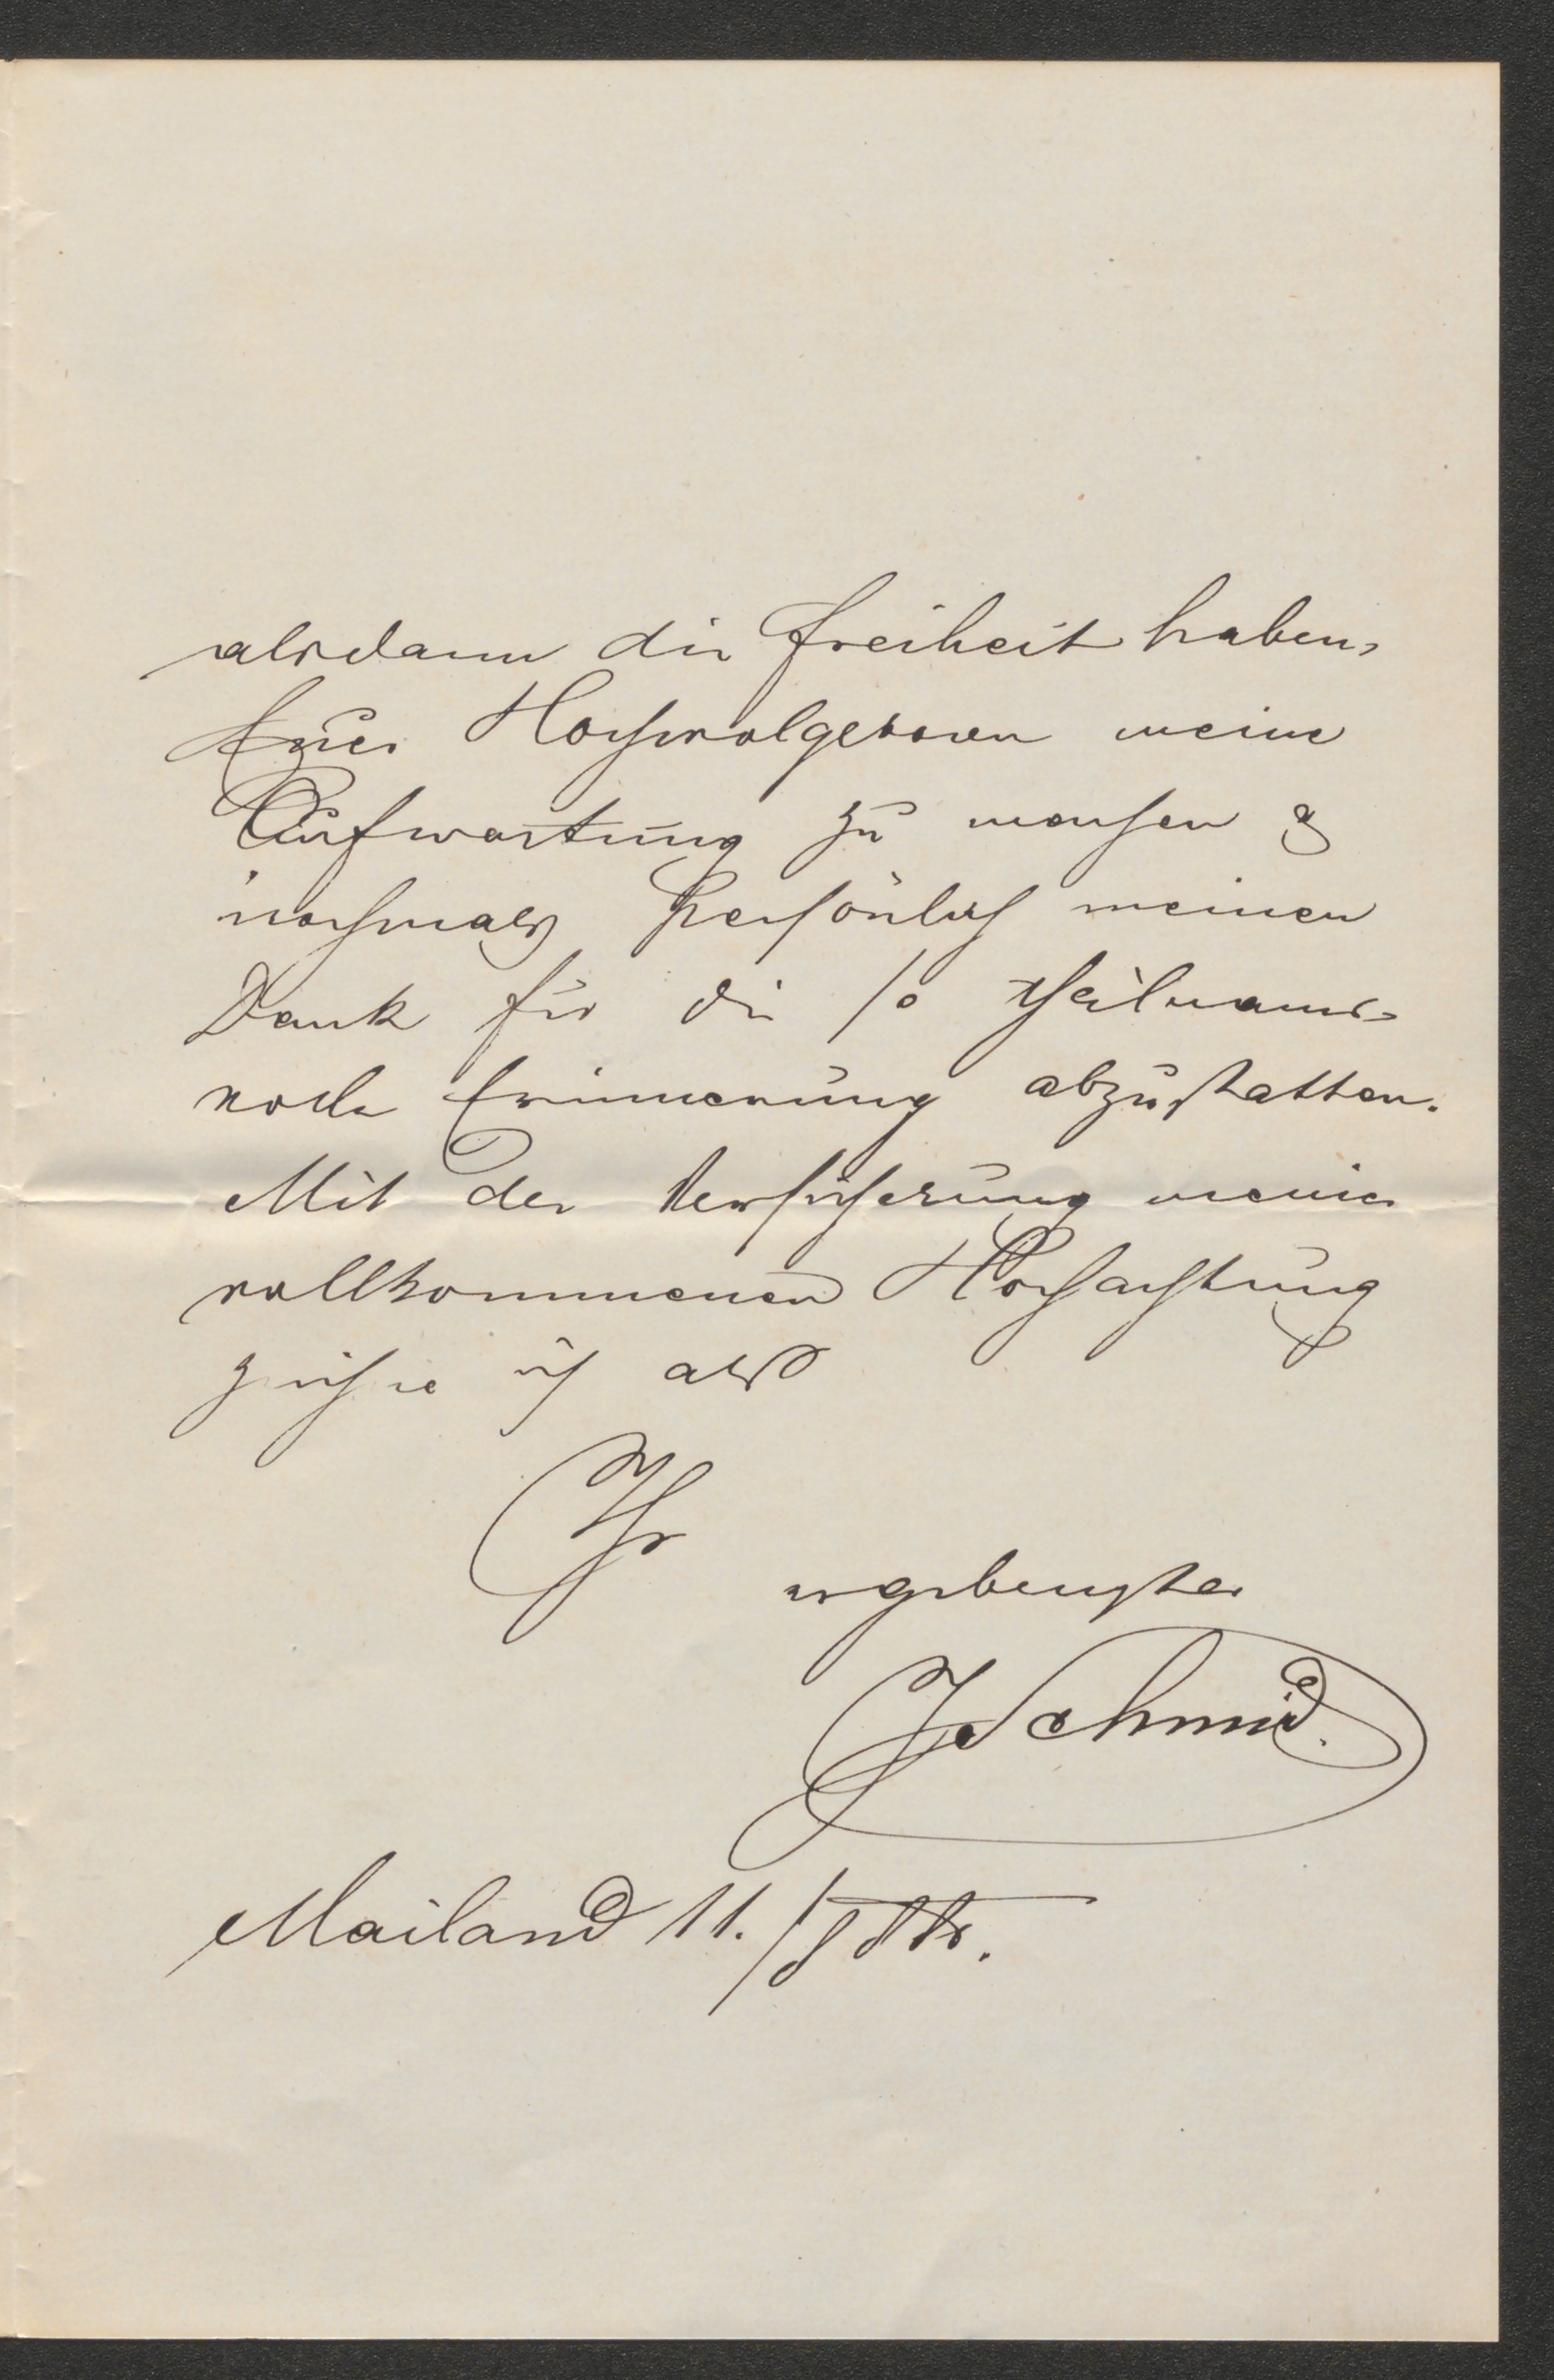 alsdann die Freiheit haben,
Euer Hochwolgeboren meine
Aufwartung zu machen &
nochmals persönlich meinen
Dank für die so theilnams-
volle Erinnerung abzustatten.
Mit der Versicherung meiner
vollkommenen Hochachtung
zeichne ich als
Ihr
ergebenster
J Schmid.
Mailand 11./